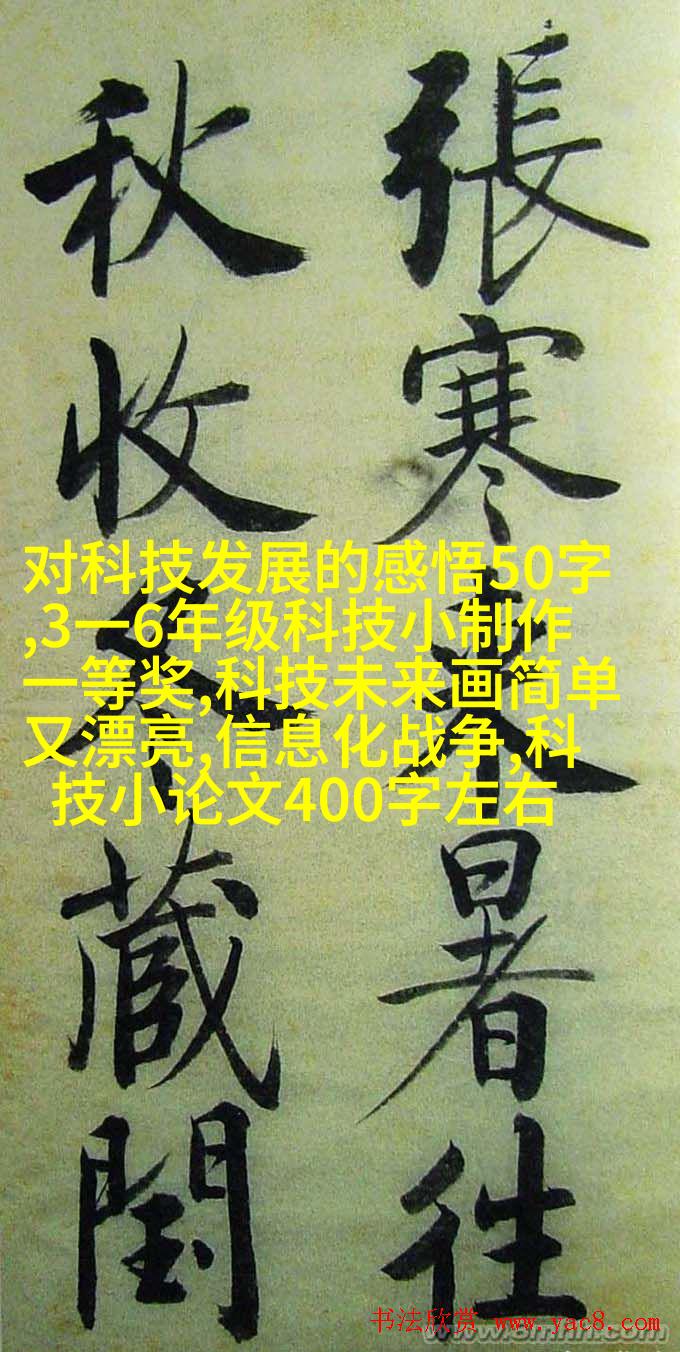 張寒来暑往
秋收冬蔵閏
对科技发展的感悟50字
,3一6年级科技小制作
一等奖,科技未来画简单
又漂亮,信息化战争,科
技小论文400字左右
书法欣赏 www.yac8.com